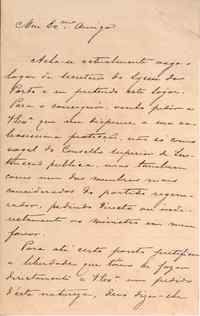 Meu Ex.mo Amigo
Acha-se actualmente vago o
logar de secretario do Lyceu do
Porto e eu pretendo este logar.
Para o conseguir, venho pedir a
V. Ex.ª que me dispense a sua va
liosissima protecção, não só como
vogal do Conselho Superior de Ins
trucção publica, mas tambem
como um dos membros mais
considerados do partido regene
rador, pedindo directa ou indi
rectamente ao ministro em meu
favor.
Para até certo ponto justificar
a liberdade que tomo de fazer
directamente a V. Ex.ª um pedido
d'esta natureza, devo dizer-lhe